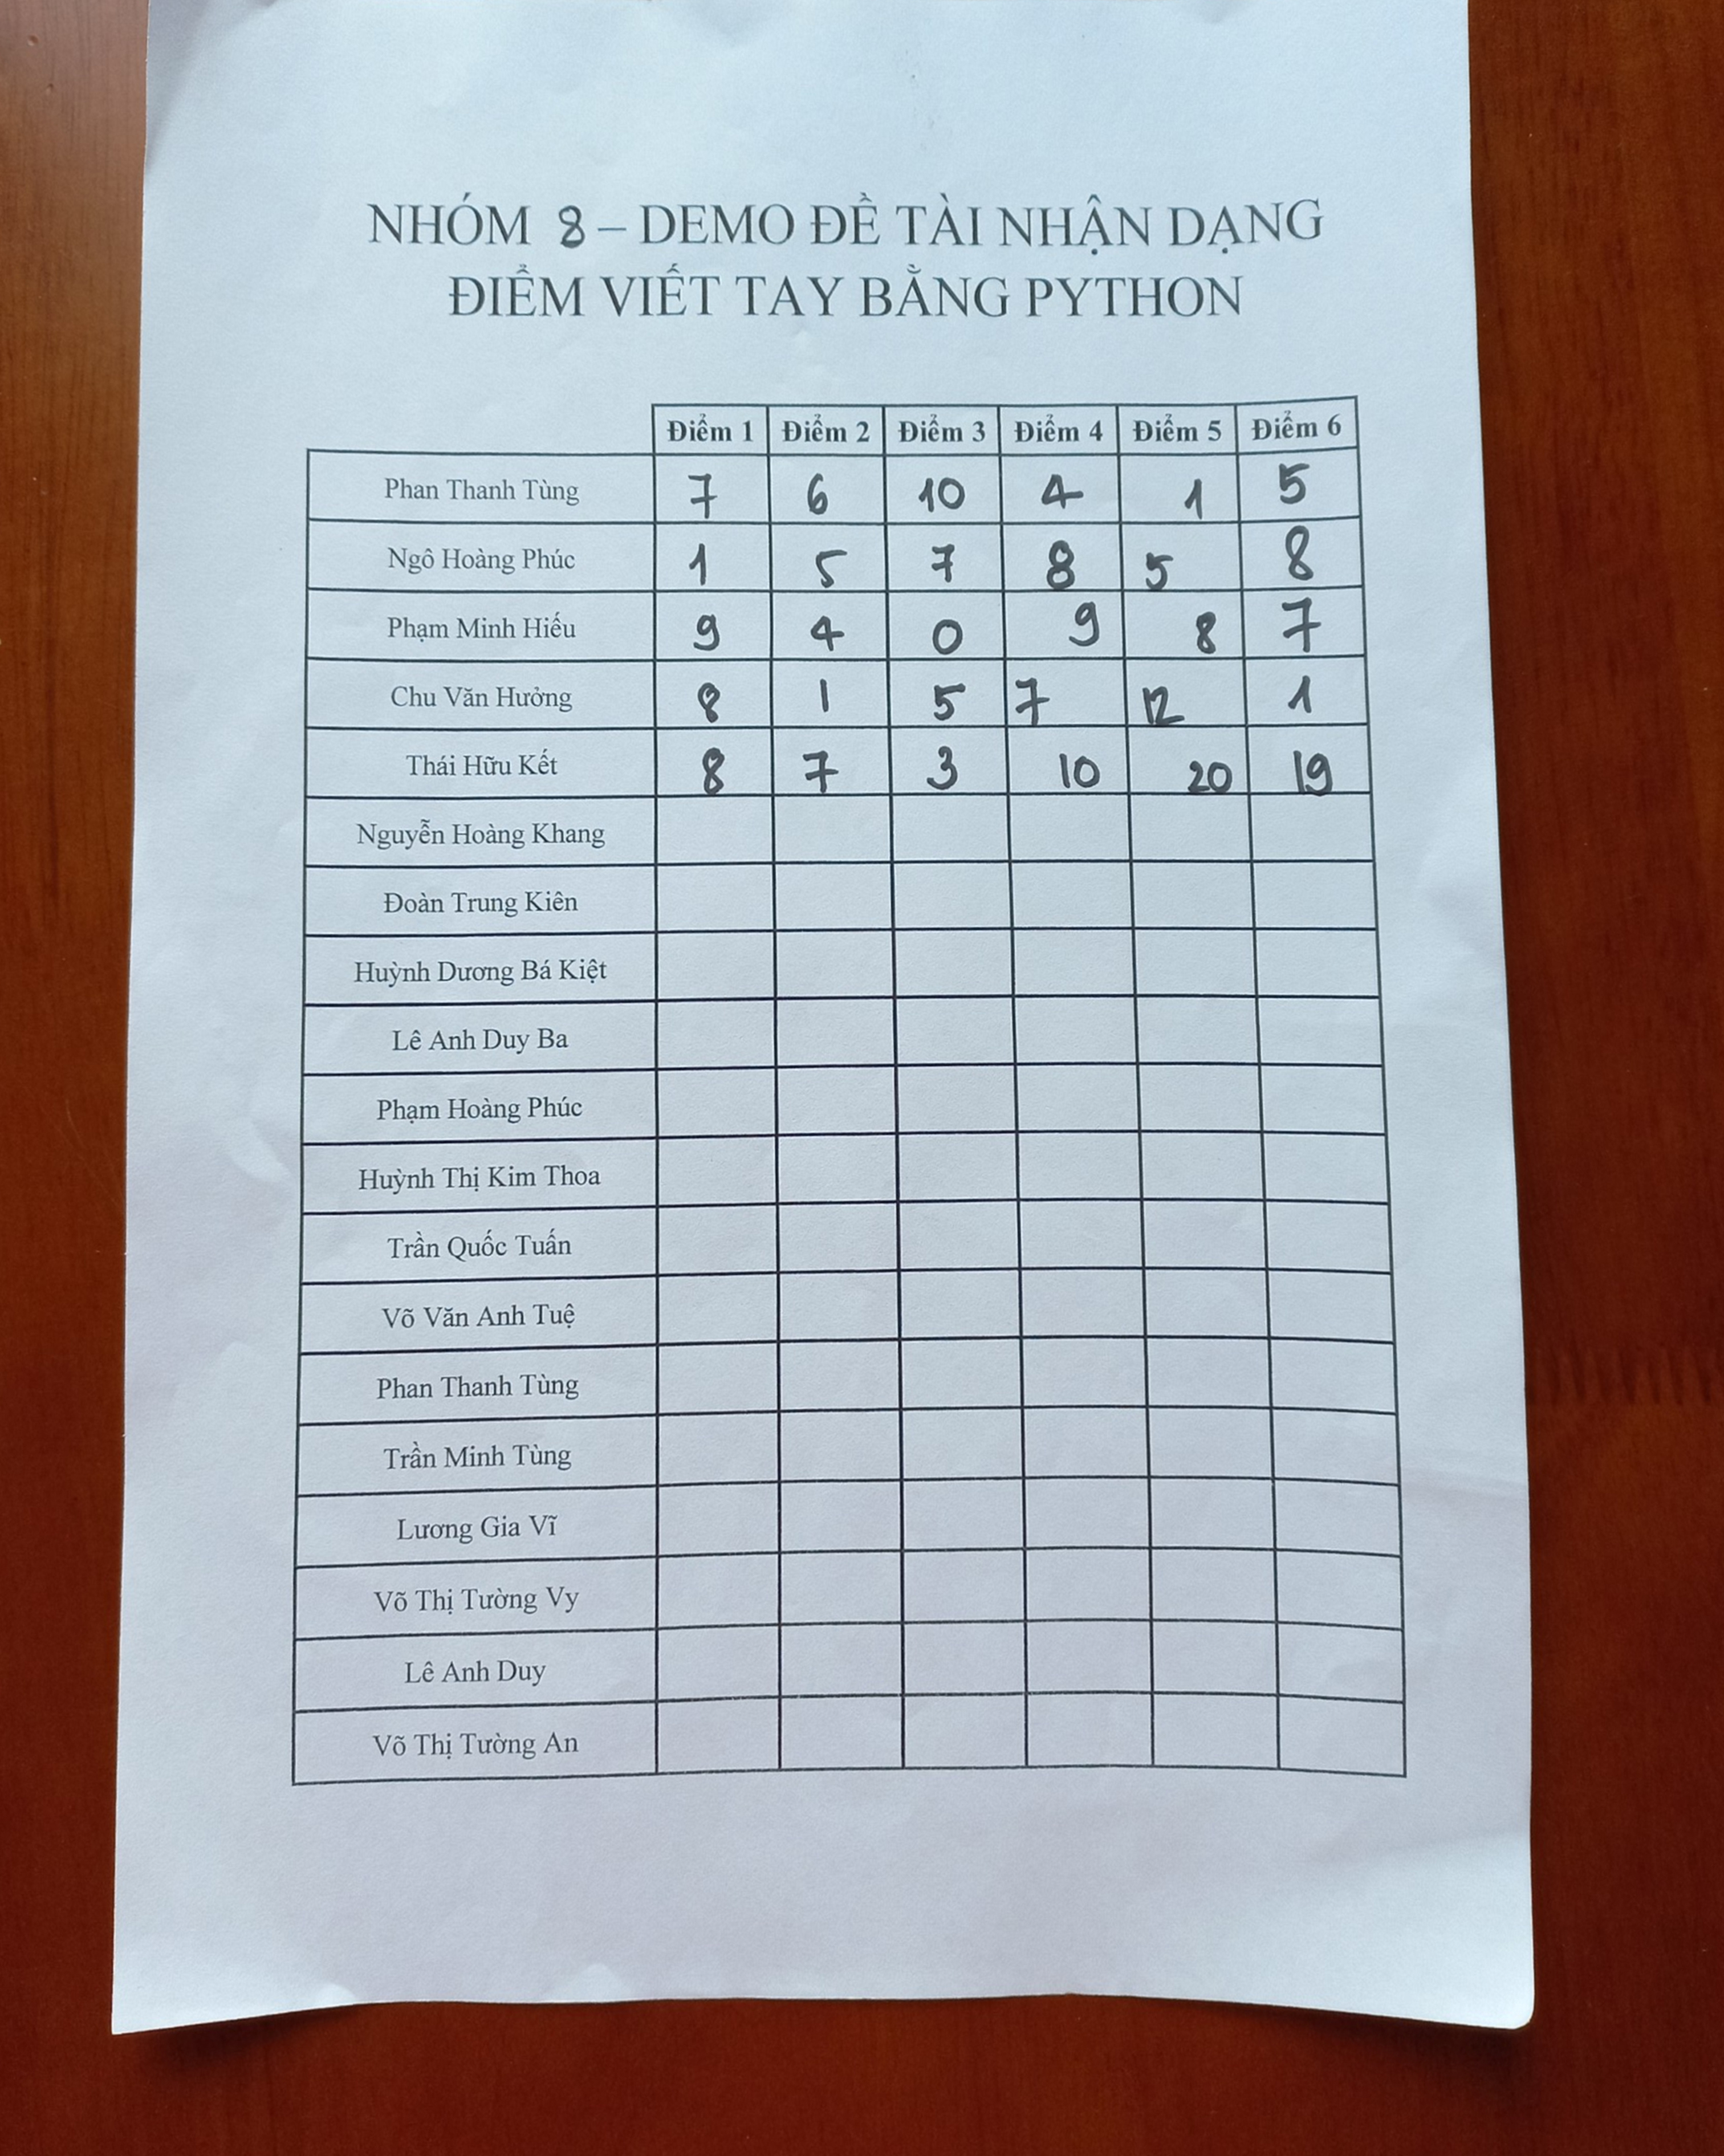 NHÓM 8 – DEMO ĐỀ TÀI NHẬN DẠNG
ĐIỂM VIẾT TAY BẰNG PYTHON
Điểm 1 Điểm 2 Điểm 3 Điểm 4 Điểm 5 Điểm 6
Phan Thanh Tùng 7 6 10 4 1 5
Ngô Hoàng Phúc 1 5 7 8 5 8
Phạm Minh Hiếu 9 4 0 9 8 7
Chu Văn Hưởng 8 1 5 7 12 1
Thái Hữu Kết 8 7 3 10 20 19
Nguyễn Hoàng Khang
Đoàn Trung Kiên
Huỳnh Dương Bá Kiệt
Lê Anh Duy Ba
Phạm Hoàng Phúc
Huỳnh Thị Kim Thoa
Trần Quốc Tuấn
Võ Văn Anh Tuệ
Phan Thanh Tùng
Trần Minh Tùng
Lương Gia Vĩ
Võ Thị Tường Vy
Lê Anh Duy
Võ Thị Tường An